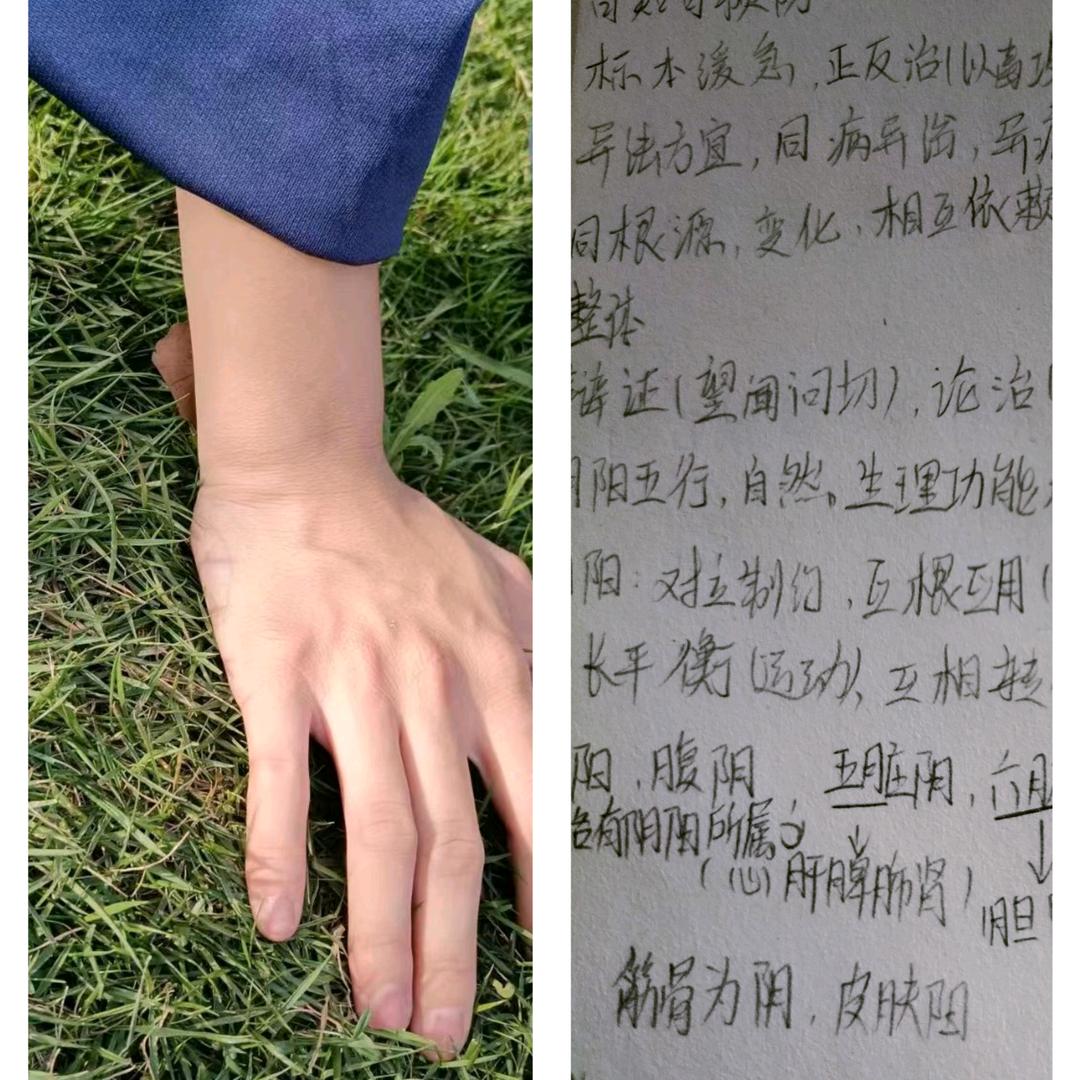 标本缓急,正反治(以毒攻
异法方宜,同病异治,异病
同根源,变化,相互依赖
整体
辩证(望闻问切),论治(
阴阳五行,自然,生理功能
阳:对立制约,互根互用(
长平衡(运动),互相转
阳,腹阴 五脏阴,六
各有阴阳所属
(心肝脾肺肾) 胆
筋骨为阴,皮肤阳